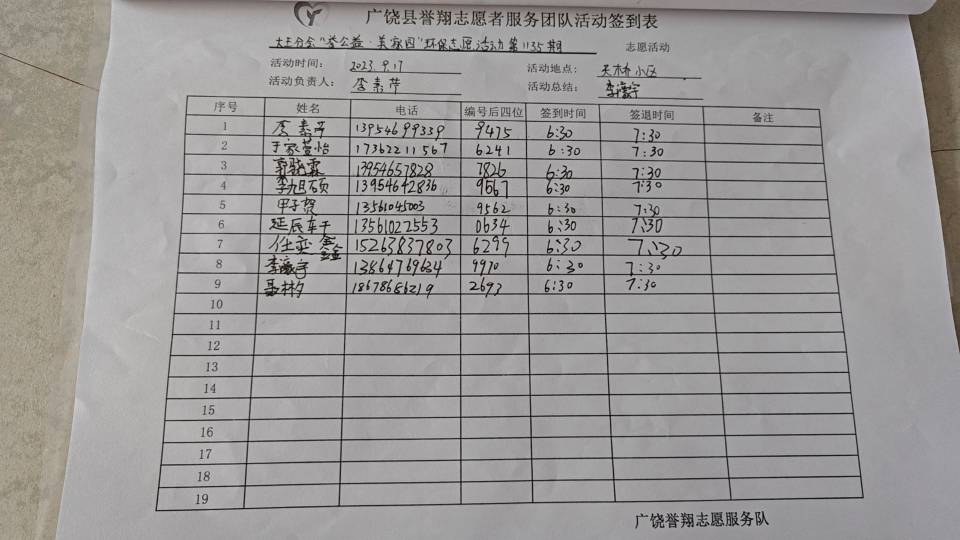 广饶县誉翔志愿者服务团队活动签到表
大王分会“誉公益·美家园”环保志愿活动第1135期 志愿活动
活动时间： 2023.9.17 活动地点： 天桥小区
活动负责人： 李素芹 活动总结： 李瀛宇
序号 姓名 电话 编号后四位 签到时间 签退时间 备注
1 李素芹 13954699339 9475 6:30 7:30
2 于家萱怡 17362211567 6241 6:30 7:30
3 13954657828 7826 6:30 7:30
4 李旭硕 13954642836 9567 6:30 7:30
5 甲子贺 13561045003 9562 6:30 7:30
6 延辰轩 13561022553 0634 6:30 7:30
7 任奕鑫 15263837803 6299 6:30 7:30
8 李瀛宇 13864769634 9970 6:30 7:30
9 聂彬 18678686219 2693 6:30 7:30
10
11
12
13
14
15
16
17
18
19
广饶誉翔志愿服务队